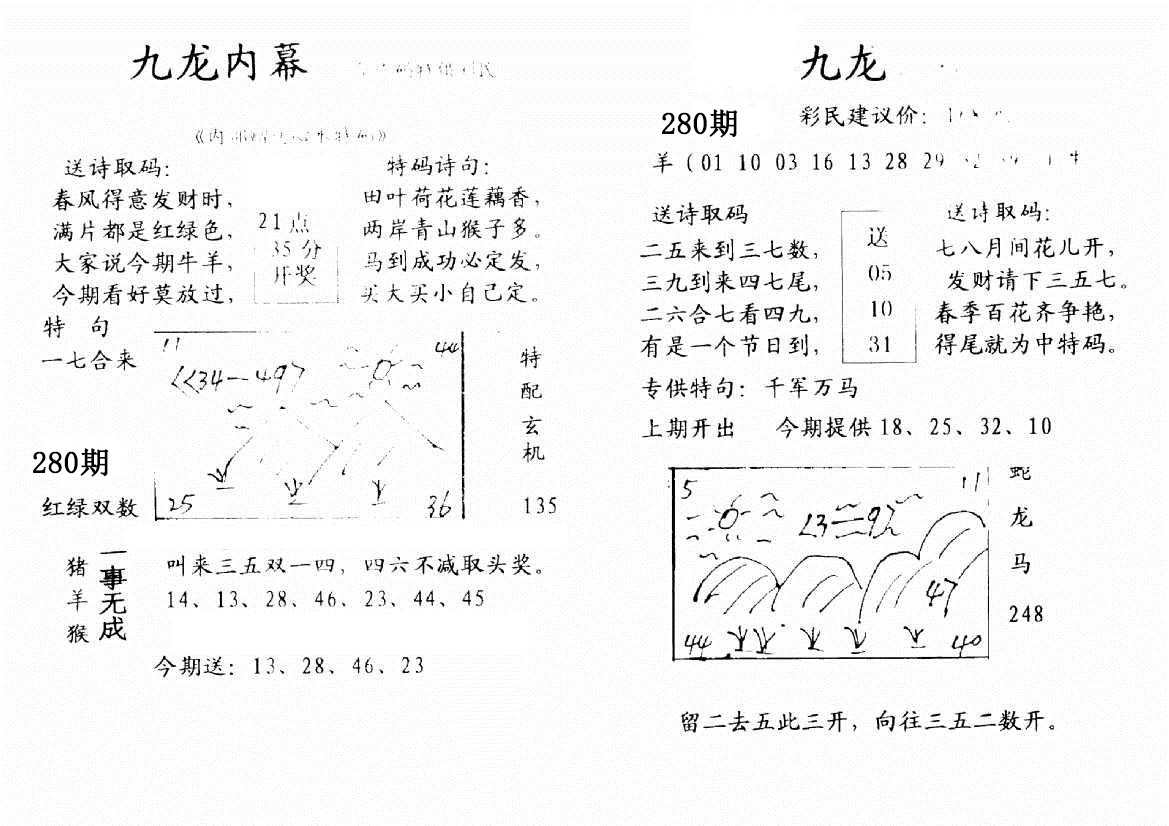 九龙内幕
送诗取码：
春风得意发财时，
满片都是红绿色，
大家说今期牛羊，
今期看好莫放过，
21点
35分
开奖
特码诗句：
田叶荷花莲藕香，
两岸青山猴子多。
马到成功必定发，
买大买小自己定。
特 句
一七合来
280期
红绿双数
11
44
34—49
25
36
特
配
玄
机
135
猪
羊
猴
一事无成
叫来三五双一四，四六不减取头奖。
14、13、28、46、23、44、45
今期送：13、28、46、23
九龙
280期
彩民建议价：
羊（01 10 03 16 13 28 29
送诗取码
二五来到三七数，
三九到来四七尾，
二六合七看四九，
有是一个节日到，
送
05
10
31
送诗取码：
七八月间花儿开，
发财请下三五七。
春季百花齐争艳，
得尾就为中特码。
专供特句：千军万马
上期开出 今期提供18、25、32、10
5
11
47
44
40
蛇
龙
马
248
留二去五此三开，向往三五二数开。